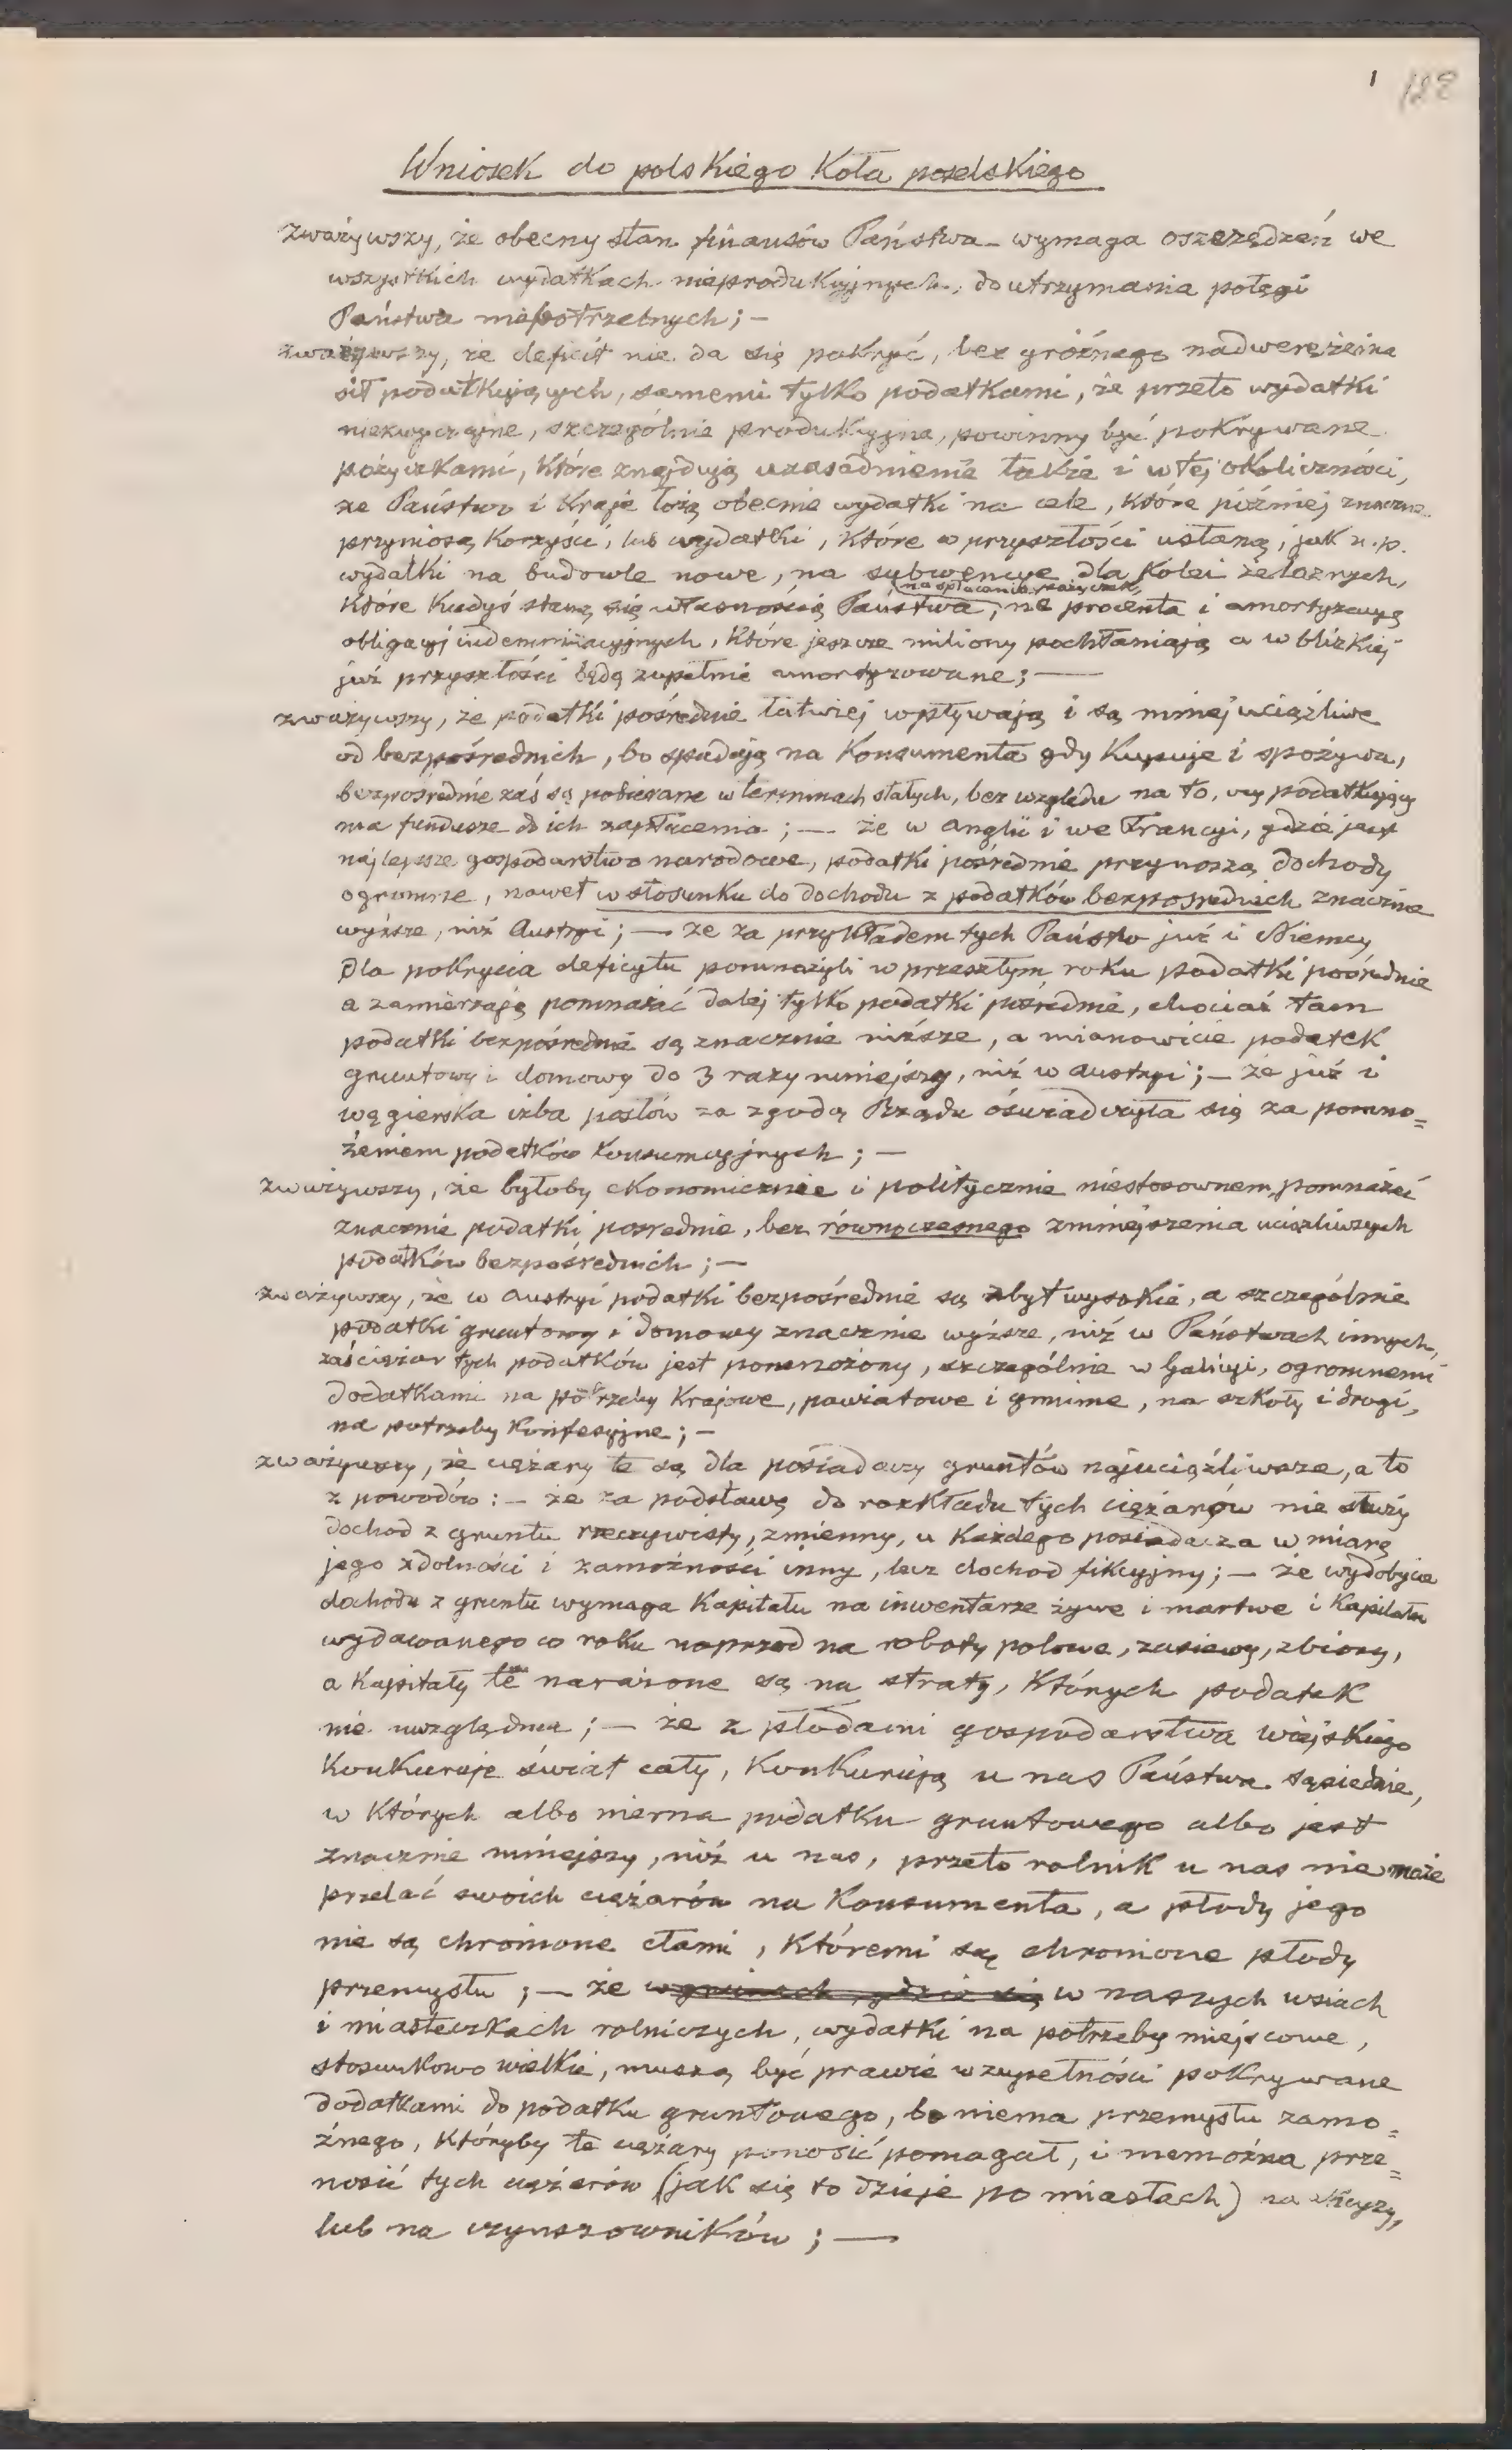 1 128
Wniosek do polskiego Koła poselskiego
zważywszy, że obecny stan finansów Państwa wymaga oszczędzeń we
wszystkich wydatkach nieprodukcyjnych, do utrzymania potęgi
Państwa niepotrzebnych; —
zważywszy, że deficit nie da się pokryć, bez groźnego nadwerężenia
sił podatkujących, samemi tylko podatkami, że przeto wydatki
niezwyczajne, szczególnie produkcyjne, powinny być pokrywane
pożyczkami, które znajdują uzasadnienie także i w tej okoliczności,
że Państwo i Kraje łożą obecnie wydatki na cele, które później znaczne
przyniosą korzyści, lub wydatki, które w przyszłości ustaną, jak n.p.
wydatki na budowle nowe, na subwencye dla Kolei żelaznych,
na spłacanie pożyczek,
które kiedyś staną się własnością Państwa, na procenta i amortyzacyą
obligacyj indemnizacyjnych, które jeszcze miliony pochłaniają a w blizkiej
już przyszłości będą zupełnie amortyzowane; —
zważywszy, że podatki pośrednie łatwiej wpływają i są mniej uciążliwe
od bezpośrednich, bo spadają na Konsumenta gdy Kupuje i spożywa,
bezpośrednie zaś są pobierane w terminach stałych, bez względu na to, czy podatkujący
ma fundusze do ich zapłacenia; — że w Anglii i we Francyi, gdzie jest
najlepsze gospodarstwo narodowe, podatki pośrednie przynoszą dochody
ogromne, nawet w stosunku do dochodu z podatków bezpośrednich znacznie
wyższe, niż Austryi; — że za przykładem tych Państw już i Niemcy
dla pokrycia deficytu pomnożyli w przeszłym roku podatki pośrednie
a zamierzają pomnażać dalej tylko podatki pośrednie, chociaż tam
podatki bezpośrednie są znacznie niższe, a mianowicie podatek
gruntowy i domowy do 3 razy mniejszy, niż w Austryi; — że już i
węgierska izba posłów za zgodą Rządu oświadczyła się za pomno=
żeniem podatków konsumcyjnych; —
zważywszy, że byłoby ekonomicznie i politycznie niestosownem, pomnażać
znacznie podatki pośrednie, bez równoczesnego zmniejszenia uciążliwszych
podatków bezpośrednich; —
zważywszy, że w Austryi podatki bezpośrednie są zbyt wysokie, a szczególnie
podatki gruntowy i domowy znacznie wyższe, niż w Państwach innych,
zaś ciężar tych podatków jest pomnożony, szczególnie w Galicyi, ogromnemi
dodatkami na potrzeby Krajowe, powiatowe i gminne, na szkoły i drogi,
na potrzeby konfesyjne; —
zważywszy, że ciężary te są dla posiadaczy gruntów najuciążliwsze, a to
z powodów: — że za podstawę do rozkładu tych ciężarów nie służy
dochod z gruntu rzeczywisty, zmienny, u Każdego posiadacza w miarę
jego zdolności i zamożności inny, lecz dochod fikcyjny; — że wydobycie
dochodu z gruntu wymaga Kapitału na inwentarze żywe i martwe i Kapitału
wydawanego co roku naprzod na roboty polowe, zasiewy, zbiory,
a Kapitały te narażone są na straty, których podatek
nie uwzględnia; — że z płodami gospodarstwa wiejskiego
Konkuruje świat cały, Konkurują u nas Państwa sąsiednie,
w których albo niema podatku gruntowego albo jest
znacznie mniejszy, niż u nas, przeto rolnik u nas nie może
przelać swoich ciężarów na Konsumenta, a płody jego
nie są chronione cłami, któremi są chronione płody
przemysłu; — że w gminach, gdzie się w naszych wsiach
i miasteczkach rolniczych, wydatki na potrzeby miejscowe,
stosunkowo wielkie, muszą być prawie w zupełności pokrywane
dodatkami do podatku gruntowego, bo niema przemysłu zamo=
żnego, któryby te ciężary ponosić pomagał, i niemożna prze=
nosić tych ciężarów (jak się to dzieje po miastach) na
lub na czynszowników; —